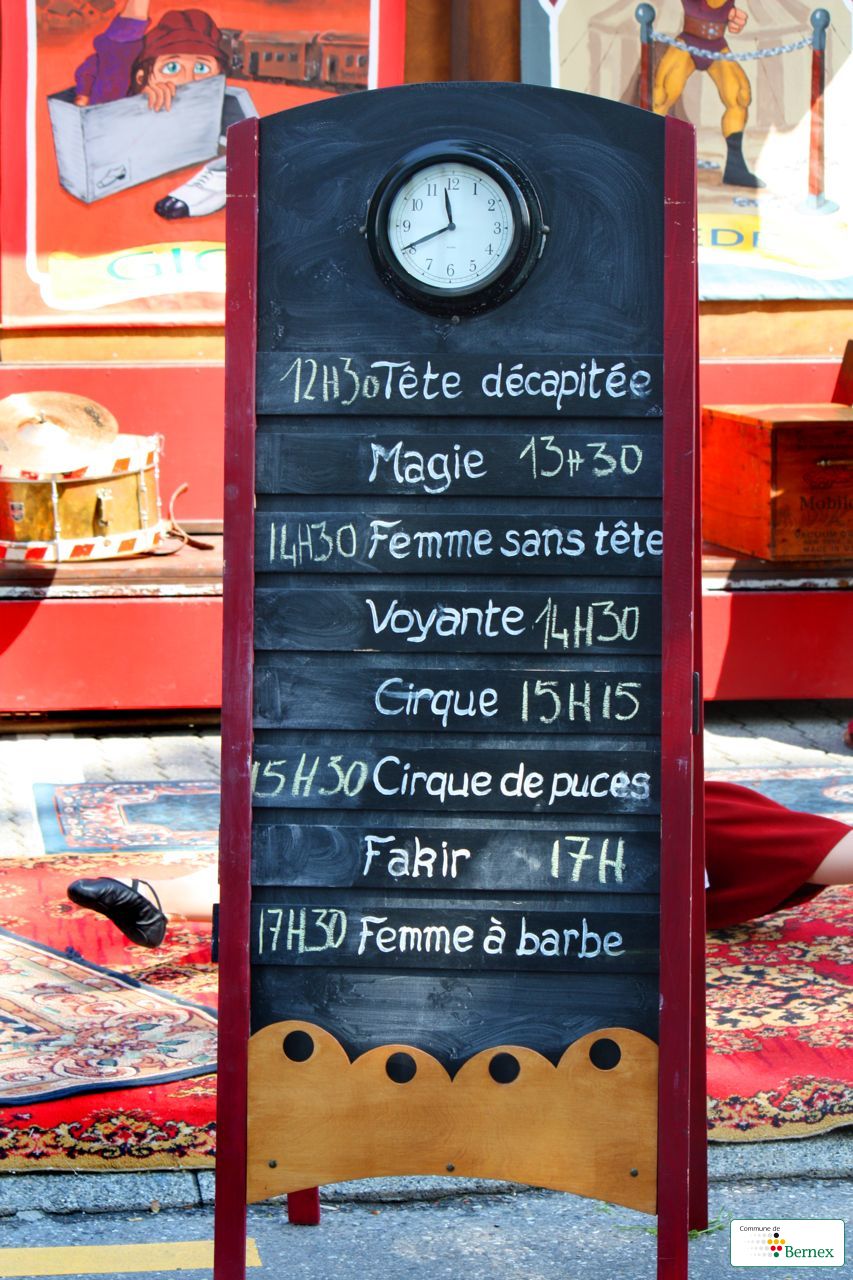 12 11 1 10 2 9 3 8 4 7 6 5
12H30 Tête décapitée
Magie 13H30
14H30 Femme sans tête
Voyante 14H30
Cirque 15H15
15H30 Cirque de puces
Fakir 17H
17H30 Femme à barbe
Commune de
Bernex